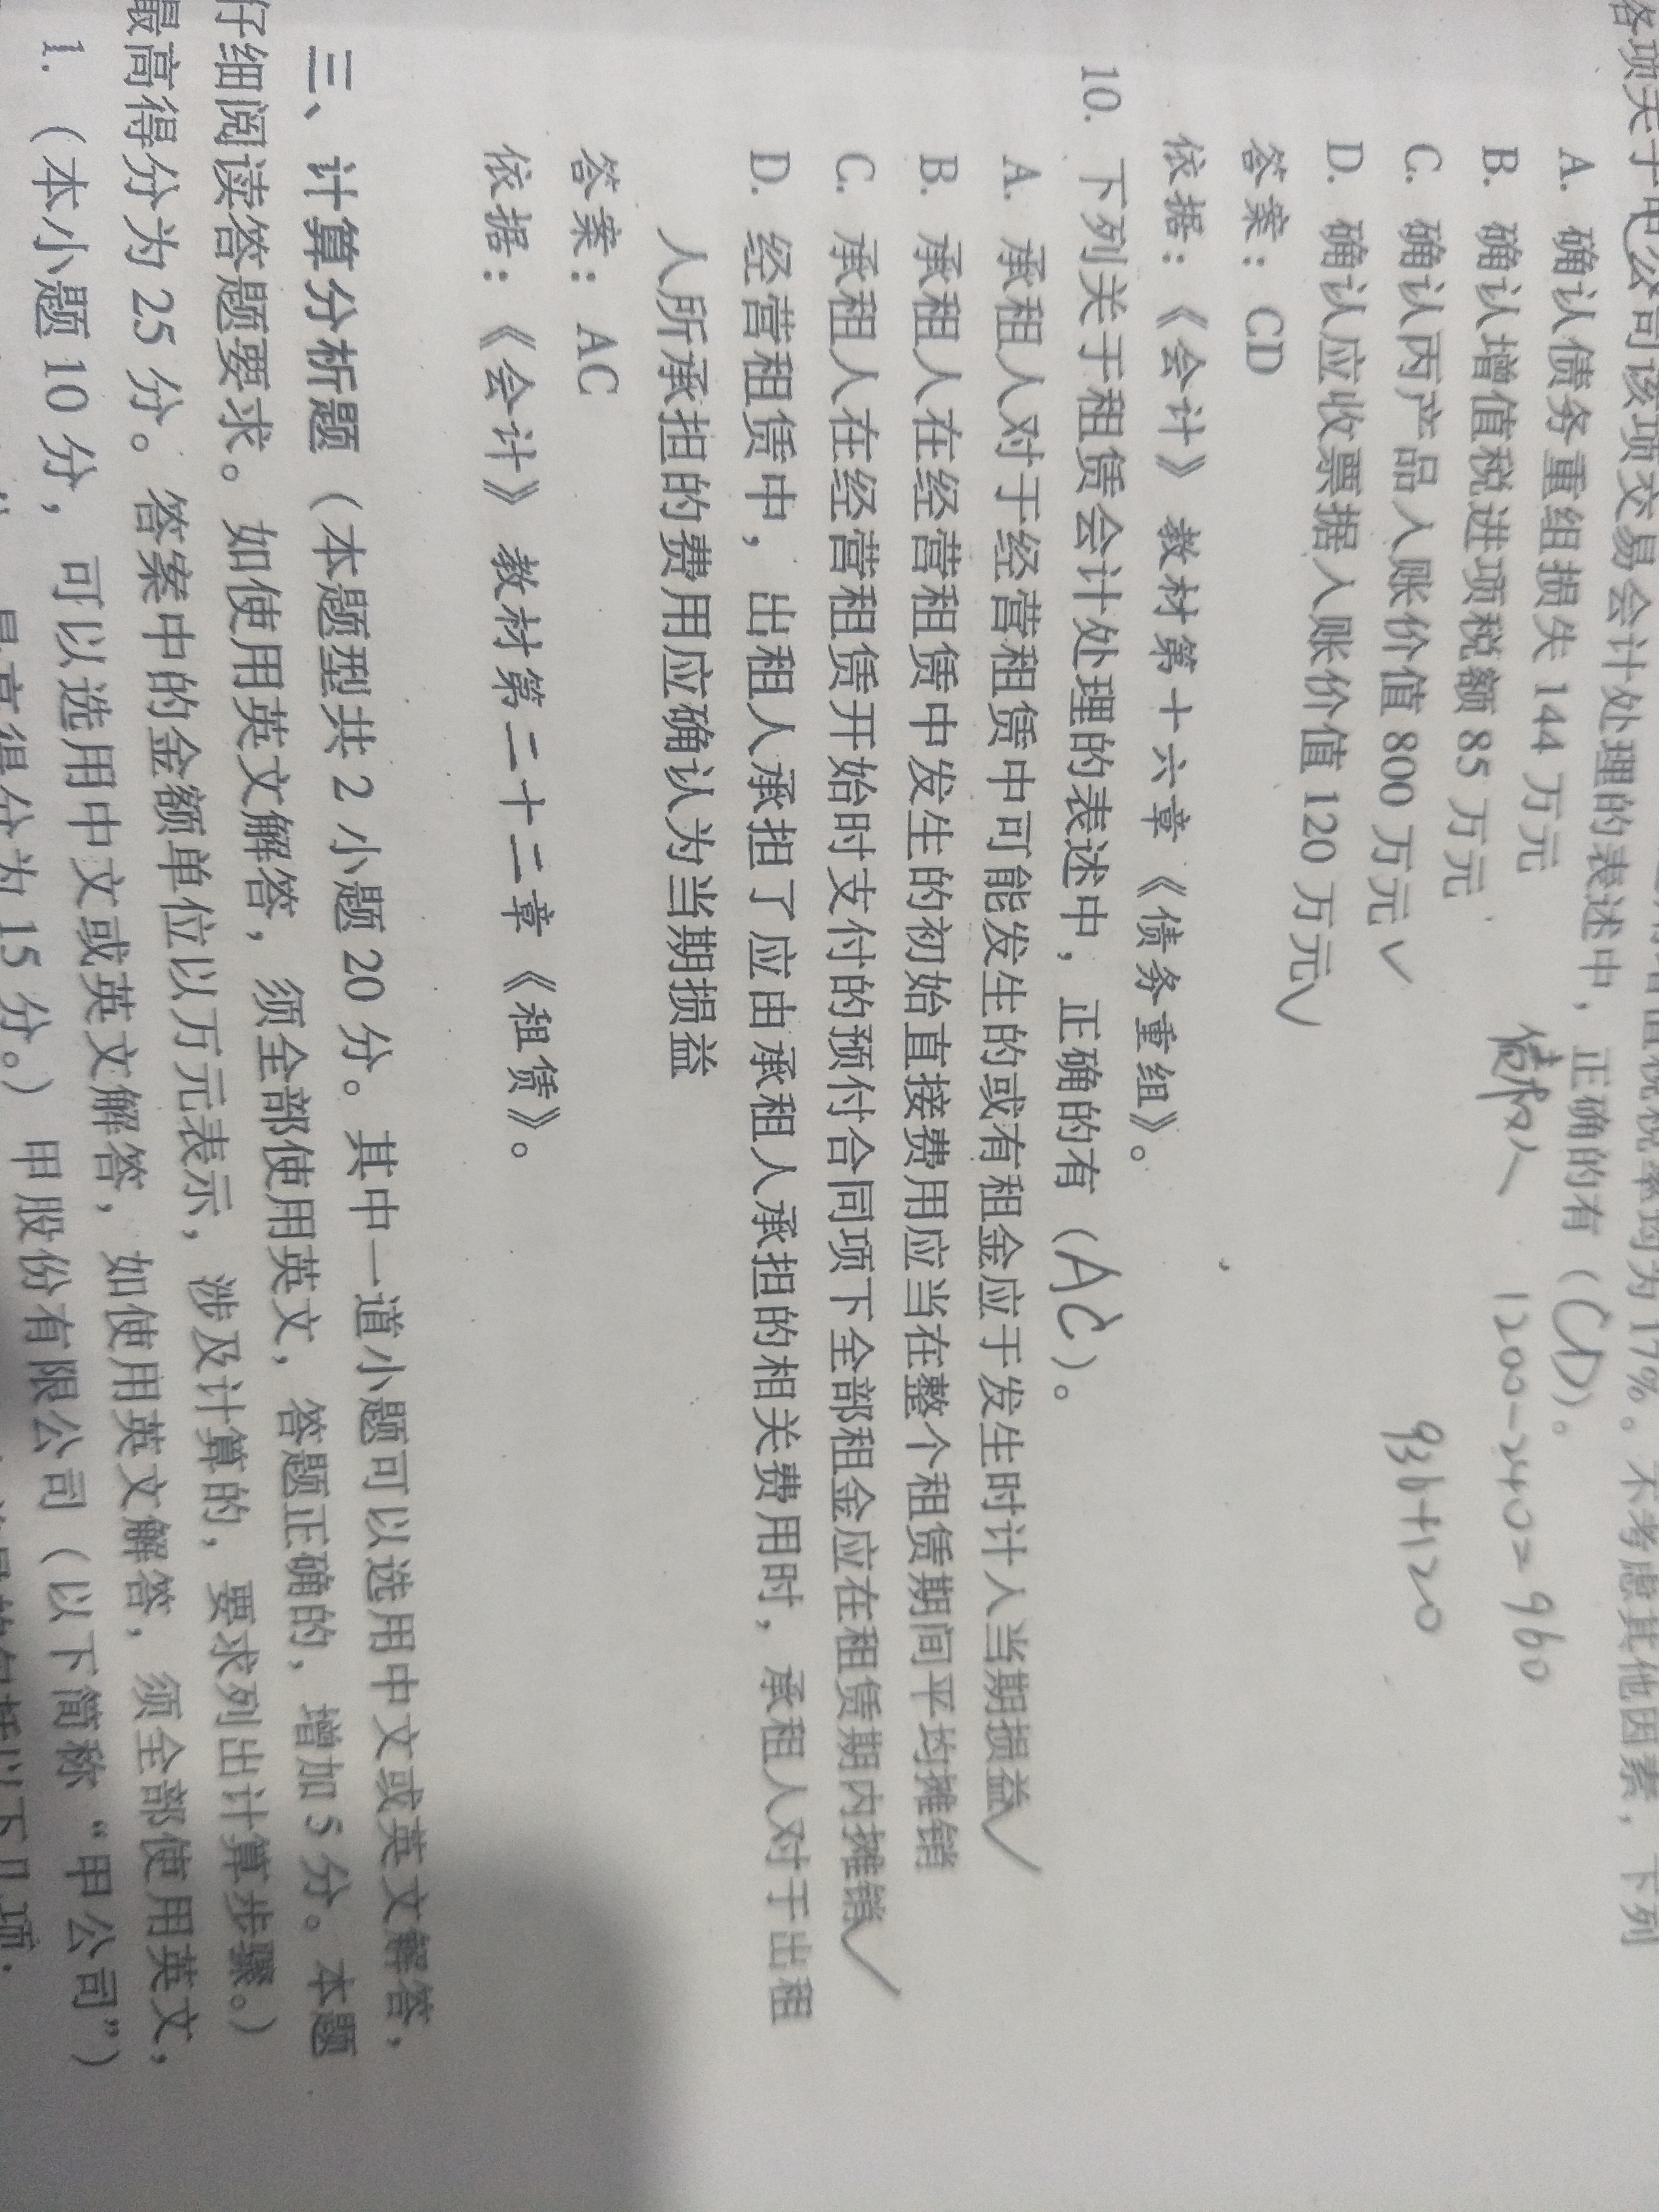 税税率均为17%。不考虑其他因素，下列
各项关于甲公司该项交易会计处理的表述中，正确的有（CD）。
A. 确认债务重组损失 144 万元
债权人 1200-240=960
B. 确认增值税进项税额 85 万元
C. 确认丙产品入账价值 800 万元✓
936+120
D. 确认应收票据入账价值 120 万元✓
答案：CD
依据：《会计》教材第十六章《债务重组》。
10. 下列关于租赁会计处理的表述中，正确的有（AC）。
A. 承租人对于经营租赁中可能发生的或有租金应于发生时计入当期损益✓
B. 承租人在经营租赁中发生的初始直接费用应当在整个租赁期间平均摊销
C. 承租人在经营租赁开始时支付的预付合同项下全部租金应在租赁期内摊销✓
D. 经营租赁中，出租人承担了应由承租人承担的相关费用时，承租人对于出租
人所承担的费用应确认为当期损益
答案：AC
依据：《会计》教材第二十二章《租赁》。
三、计算分析题（本题型共 2 小题 20 分。其中一道小题可以选用中文或英文解答，
仔细阅读答题要求。如使用英文解答，须全部使用英文，答题正确的，增加 5 分。本题
最高得分为 25 分。答案中的金额单位以万元表示，涉及计算的，要求列出计算步骤。）
1. （本小题 10 分，可以选用中文或英文解答，如使用英文解答，须全部使用英文，
最高得分为 15 分。）甲股份有限公司（以下简称“甲公司”）